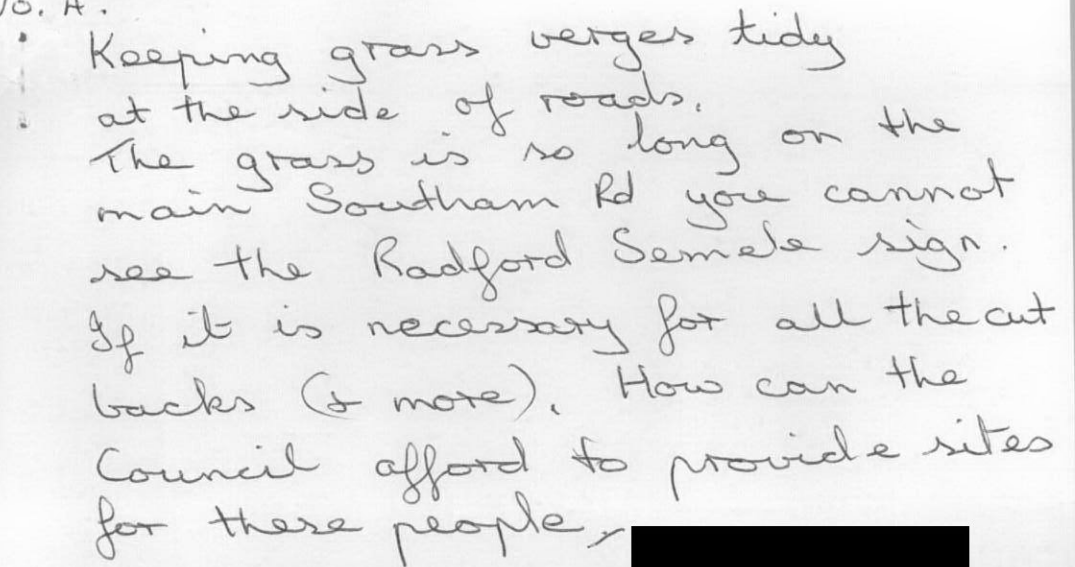 Keeping grass verges tidy
at the side of roads.
The grass is so long on the
main Southam Rd you cannot
see the Radford Semele sign.
If it is necessary for all the cut
backs (& more). How can the
Council afford to provide sites
for these people,